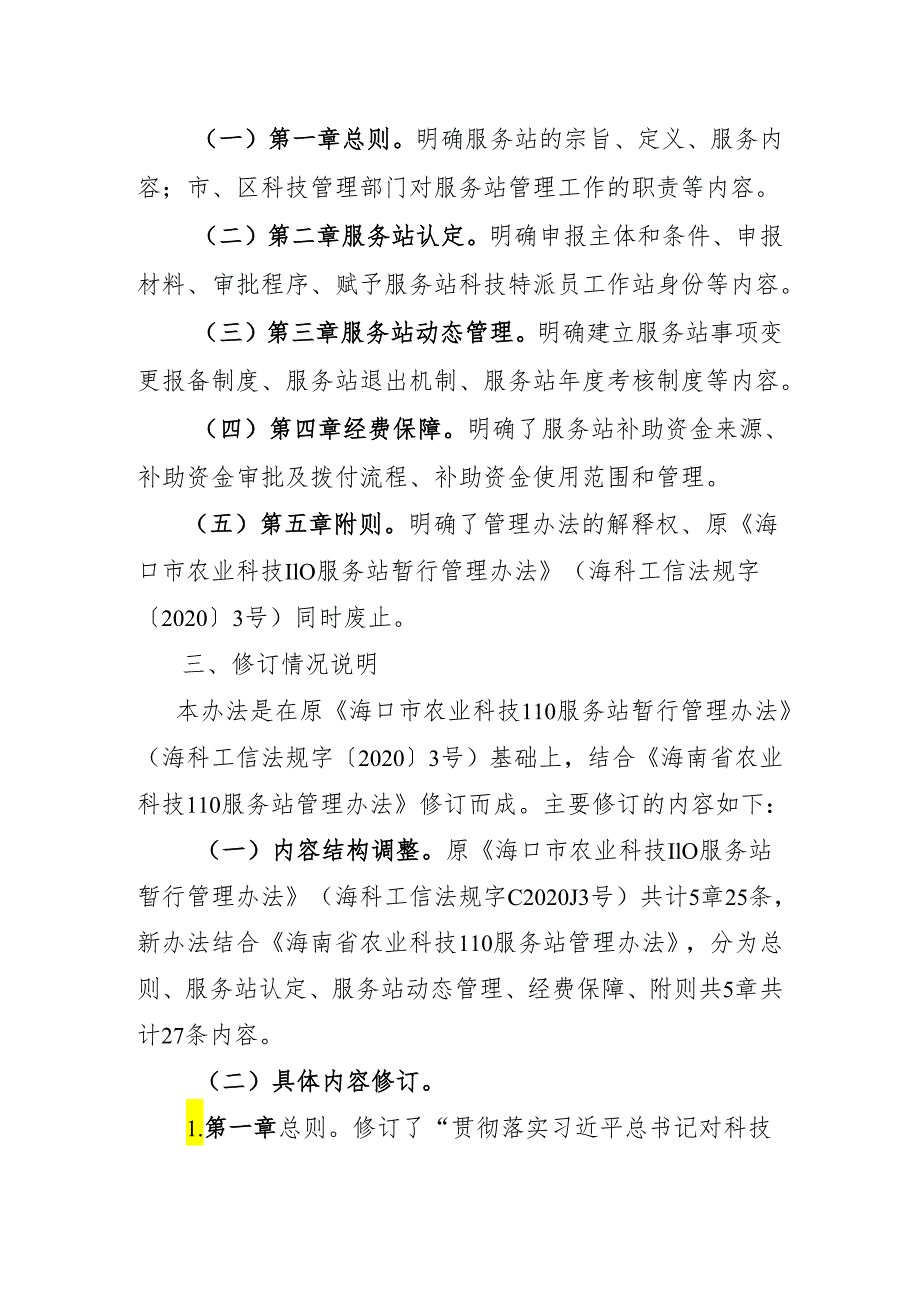 （一）第一章总则。明确服务站的宗旨、定义、服务内
容；市、区科技管理部门对服务站管理工作的职责等内容。
（二）第二章服务站认定。明确申报主体和条件、申报
材料、审批程序、赋予服务站科技特派员工作站身份等内容。
（三）第三章服务站动态管理。明确建立服务站事项变
更报备制度、服务站退出机制、服务站年度考核制度等内容。
（四）第四章经费保障。明确了服务站补助资金来源、
补助资金审批及拨付流程、补助资金使用范围和管理。
（五）第五章附则。明确了管理办法的解释权、原《海
口市农业科技IlO服务站暂行管理办法》（海科工信法规字
〔2020〕3号）同时废止。
三、修订情况说明
本办法是在原《海口市农业科技110服务站暂行管理办法》
（海科工信法规字〔2020〕3号）基础上，结合《海南省农业
科技110服务站管理办法》修订而成。主要修订的内容如下：
（一）内容结构调整。原《海口市农业科技IlO服务站
暂行管理办法》（海科工信法规字C2020J3号）共计5章25条，
新办法结合《海南省农业科技110服务站管理办法》，分为总
则、服务站认定、服务站动态管理、经费保障、附则共5章共
计27条内容。
（二）具体内容修订。
1.第一章总则。修订了“贯彻落实习近平总书记对科技